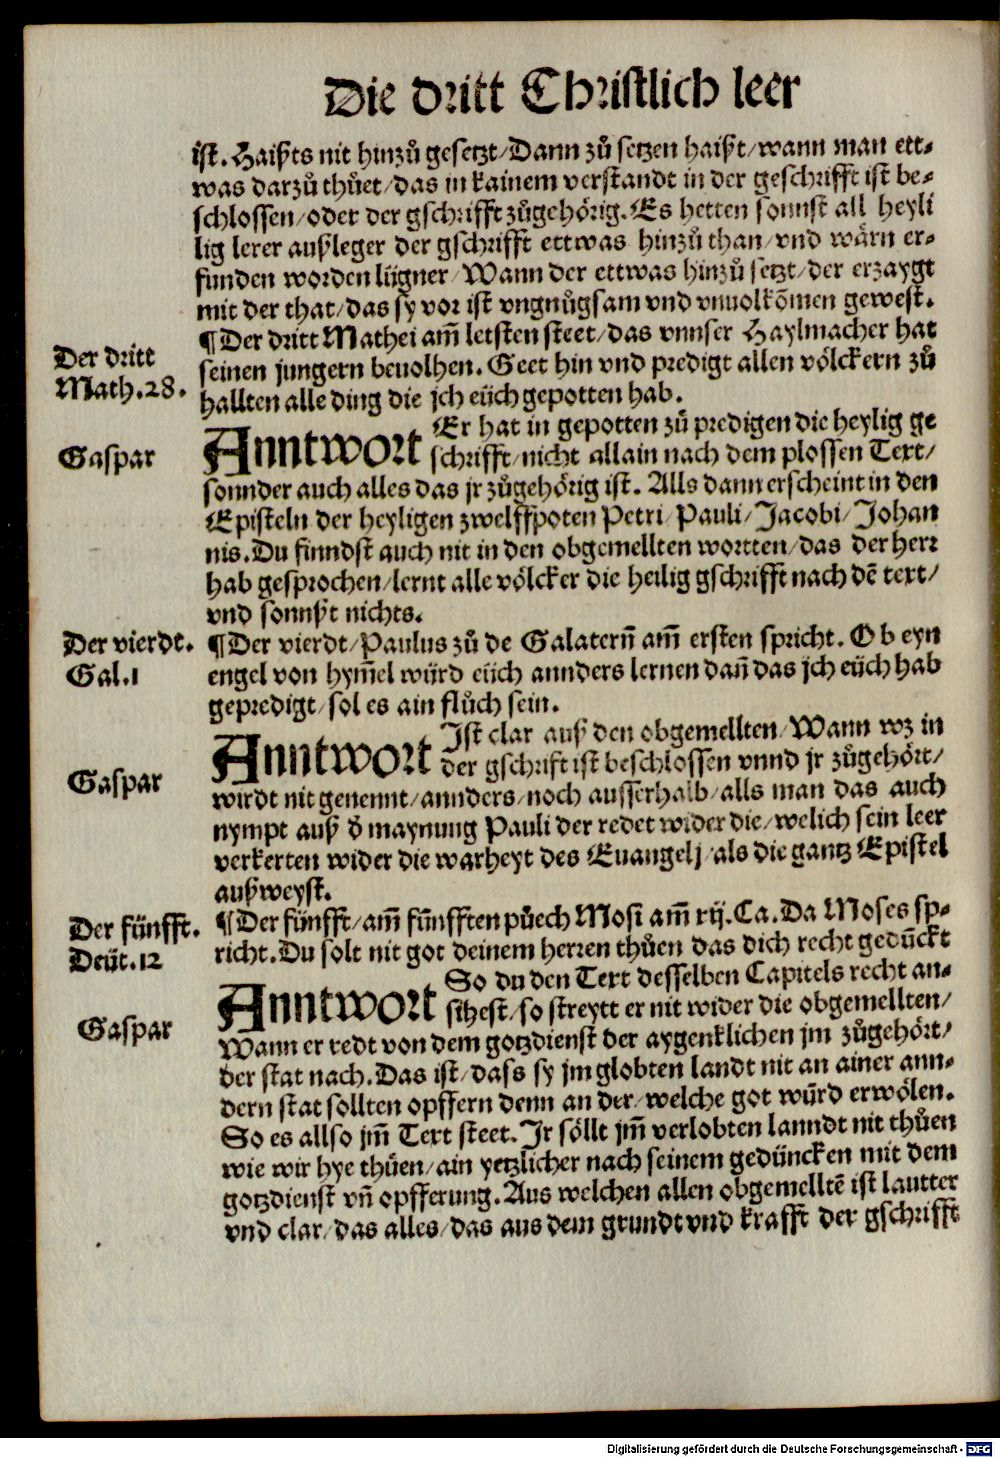 Die dritt Christlich leer
ist. Haißts nit hinzů gesetzt/Dann zů setzen haißt/wann man ett⸗
was darzů thůet/das in kainem verstandt in der geschrifft ist be⸗
schlossen/oder der gschrifft zůgehörig. Es hetten sonnst all heyli
lig lerer außleger der gschrifft ettwas hinzů than/vnd wärn er⸗
funden worden lügner/Wann der ettwas hinzů setzt/der erzaygt
mit der that/das sy vor ist vngnůgsam vnd vnuolkōmen gewest.
¶Der dritt Mathei am̄ letsten steet/das vnnser Haylmacher hat
Der dritt
Math.28.
seinen jungern beuolhen. Geet hin vnd predigt allen völckern zů
hallten alle ding die jch eüch gepotten hab.
Gaspar
Anntwort Er hat in gepotten zů predigen die heylig ge
schrifft/nicht allain nach dem plossen Text/
sonnder auch alles das jr zůgehörig ist. Alls dann erscheint in den
Episteln der heyligen zwelffpoten Petri/Pauli/Jacobi/Johan
nis. Du finndst auch nit in den obgemellten wortten/das der herr
hab gesprochen/lernt alle völcker die heilig gschrifft nach dē text/
vnd sonnßt nichts.
Der vierdt.
Gal.1
¶Der vierdt/Paulus zů de Galatern̄ am̄ ersten spricht. Ob eyn
engel von hym̄el würd eüch annders lernen dan̄ das jch eüch hab
gepredigt/sol es ain flůch sein.
Gaspar
Anntwort Ist clar auß den obgemellten/Wann wz in
der gschrift ist beschlossen vnnd jr zůgehört/
wirdt nit genennt/annders/noch ausserhalb/alls man das auch
nympt auß d̄ maynung Pauli der redet wider die/welich sein leer
verkerten wider die warheyt des Euangelj/als die gantz Epistel
außweyst.
Der fünfft.
Deüt.12
¶Der fünfft/am̄ fūnfften půech Mosi am̄ xij.Ca. Da Moses sp⸗
richt. Du solt nit got deinem herren thůen das dich recht gedūckt
Gaspar
Anntwort So du den Text desselben Capitels recht an⸗
sihest/so streytt er nit wider die obgemellten/
Wann er redt von dem gotzdienst der aygenklichen jm zůgehört/
der stat nach. Das ist/dass sy jm globten landt nit an ainer ann⸗
dern stat sollten opffern denn an der/welche got wůrd erwölen.
So es allso jm̄ Text steet. Jr söllt jm̄ verlobten lanndt nit thůen
wie wir hye thůen/ain yetzlicher nach seinem gedüncken mit dem
gotzdienst vn̄ opfferung. Aus welchen allen obgemelltē ist lautter
vnd clar/das alles/das aus dem grundt vnd krafft der gschrifft
Digitalisierung gefördert durch die Deutsche Forschungsgemeinschaft - DFG